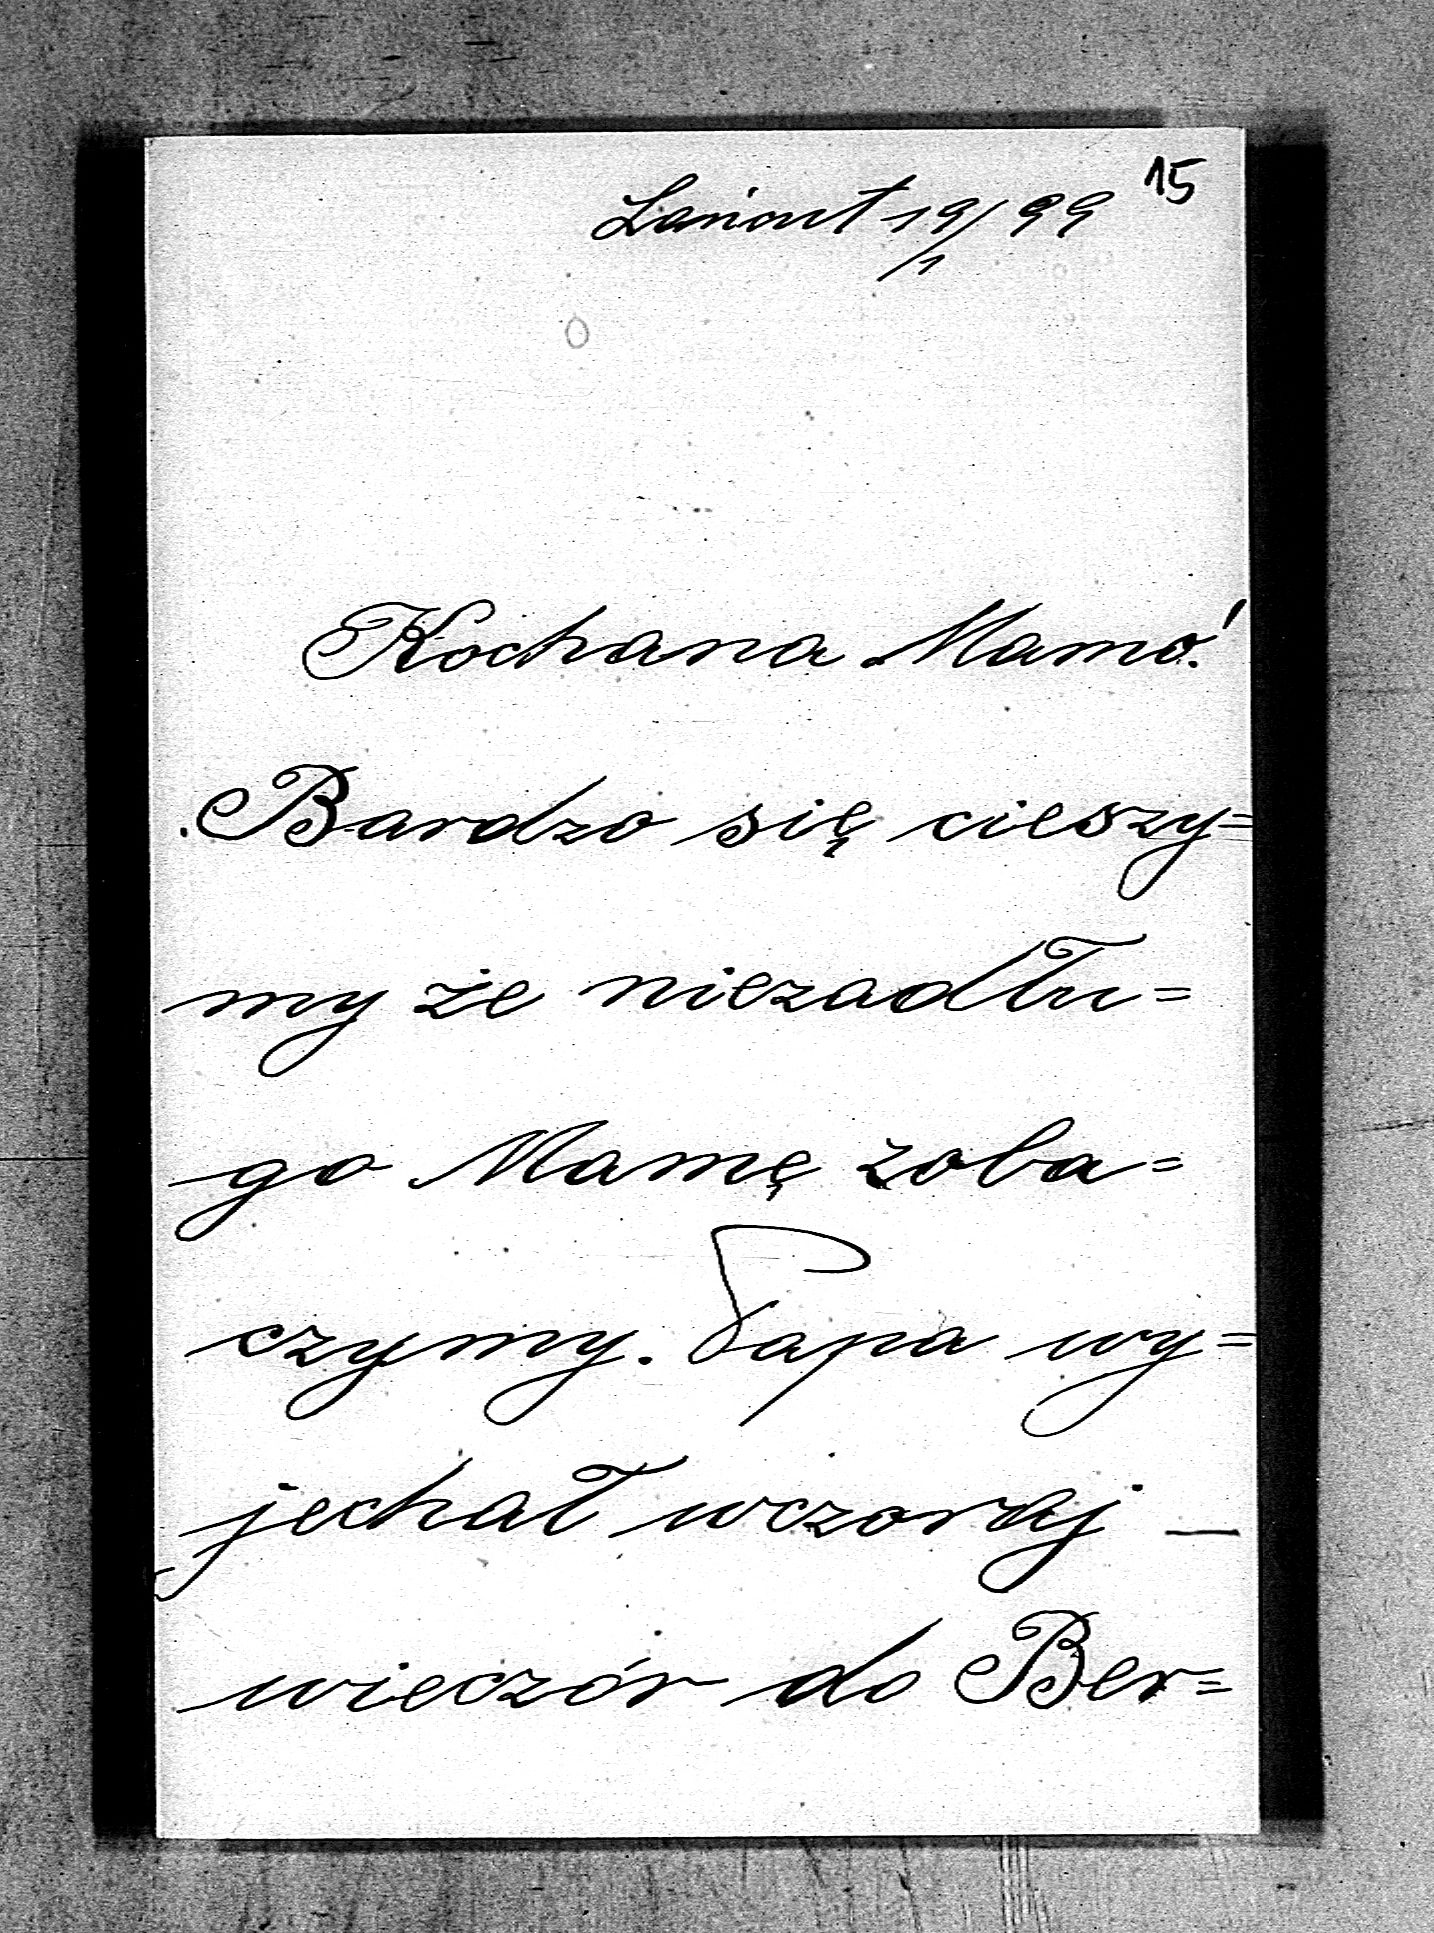 15
Łańcut 19/1 99
Kochana Mamo!
Bardzo się cieszy=
my że niezadłu=
go Mamę zoba=
czymy. Papa wy=
jechał wczoraj —
wieczór do Ber=